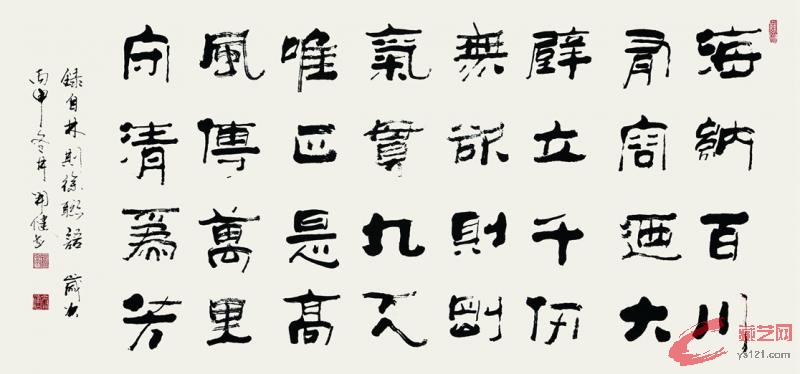 海納百川
有容迺大
壁立千仞
無欲則剛
氣貫九天
唯正是高
風傳萬里
守清爲芳
録自林則徐聯語 歲次
丙申冬
藏艺网
ys121.com